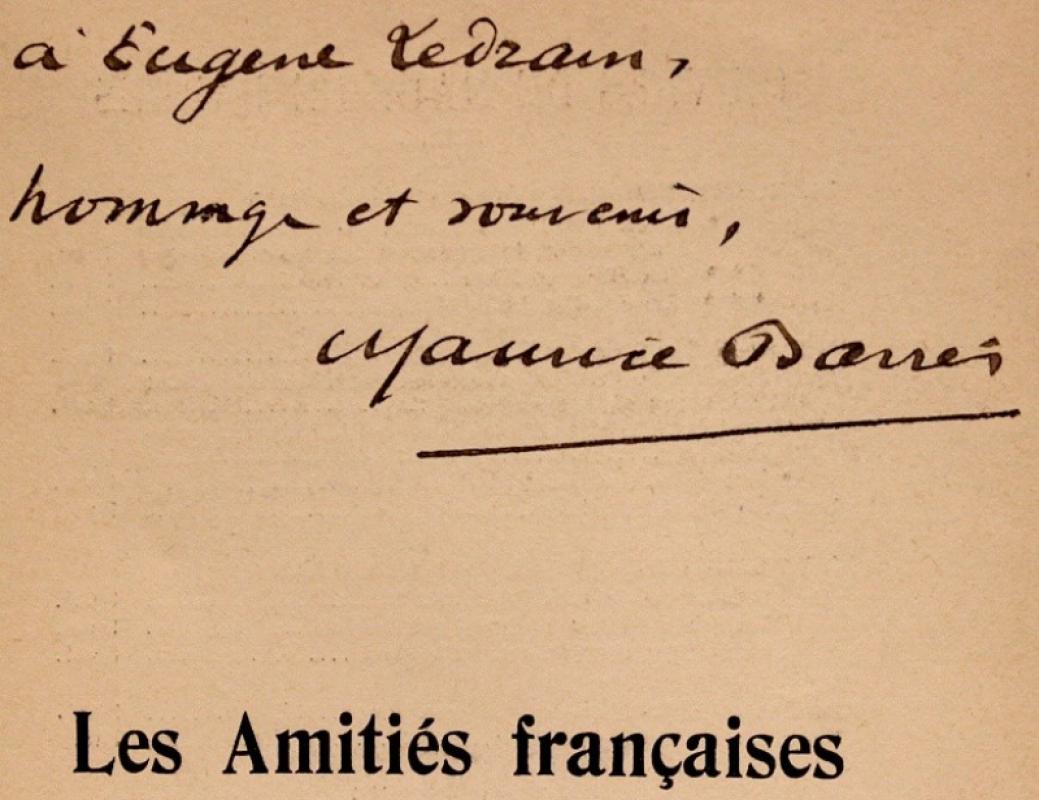 à Eugene Ledrain,
hommage et souvenir,
Maurice Barrès
Les Amitiés françaises